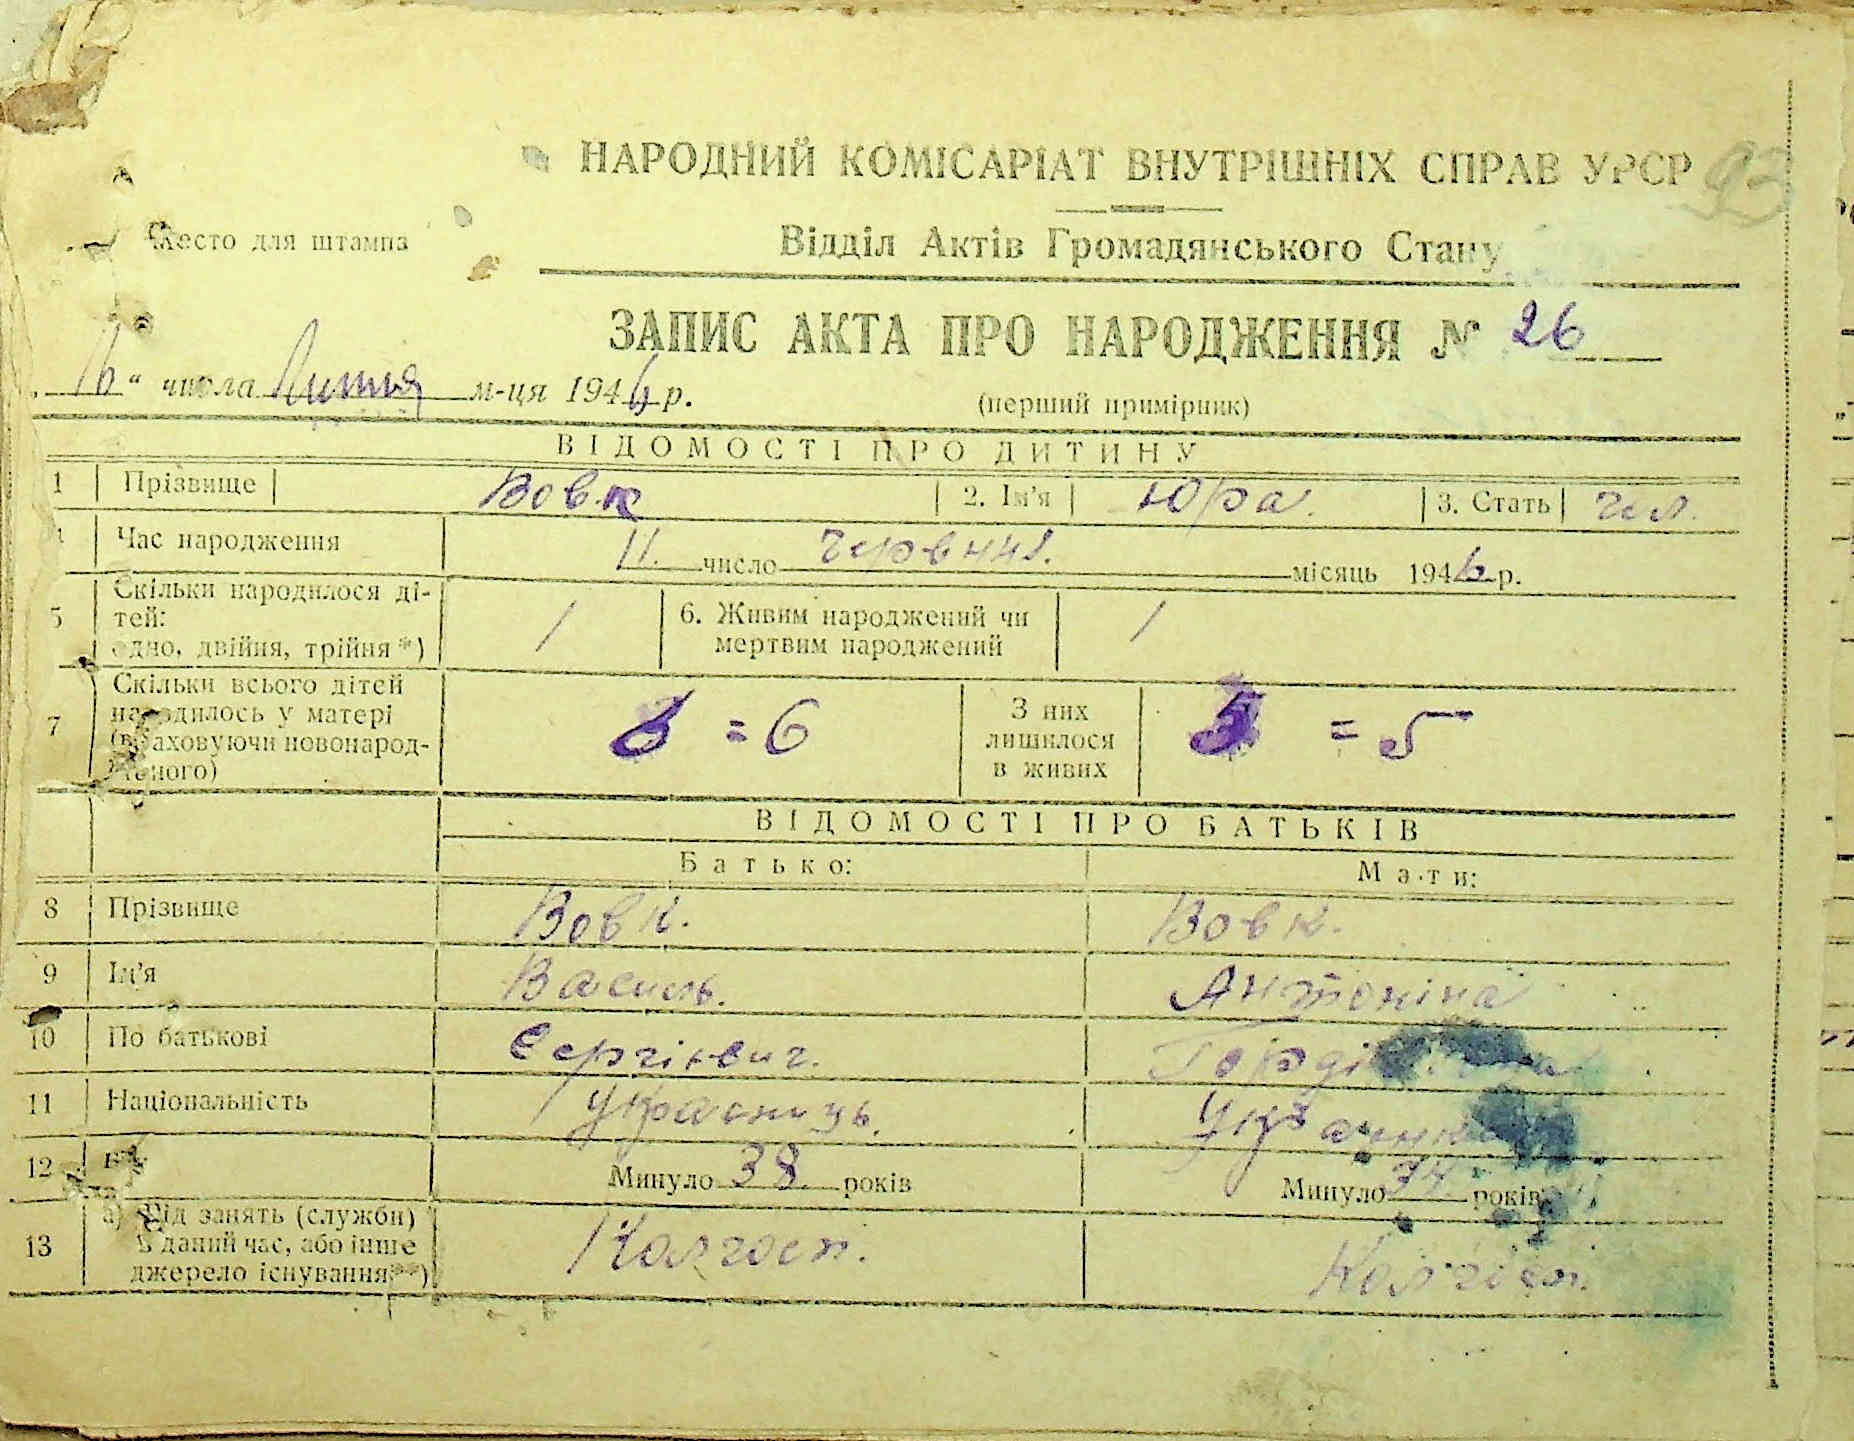 НАРОДНИЙ КОМІСАРІАТ ВНУТРІШНІХ СПРАВ УРСР 93
Место для штампа
Відділ Актів Громадянського Стану
ЗАПИС АКТА ПРО НАРОДЖЕННЯ № 26
„16“ числа Липня м-ця 1946 р.
(перший примірник)
ВІДОМОСТІ ПРО ДИТИНУ
1 Прізвище Вовк 2. Ім'я Юра. 3. Стать чол.
4 Час народження 11. число червня. місяць 1946 р.
5 Скільки народилося дітей: одно, двійня, трійня *) 1 6. Живим народжений чи мертвим народжений 1
7 Скільки всього дітей народилось у матері (враховуючи новонародженого) 6 = 6 З них лишилося в живих 5 = 5
ВІДОМОСТІ ПРО БАТЬКІВ
Батько: Мати:
8 Прізвище Вовк. Вовк.
9 Ім'я Василь. Антоніна
10 По батькові Сергієвич.
11 Національність Украєниць.
12 Вік Минуло 38 років Минуло 34 років
13 а) Від занять (служби) в даний час, або інше джерело існування **) Колгосп. Колгосп.